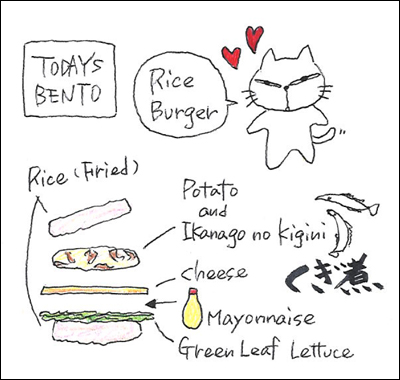 TODAYS
BENTO
Rice
Burger
Rice (Fried)
Potato
and
Ikanago no kigini
くぎ煮
cheese
Mayonnaise
Green Leaf Lettuce